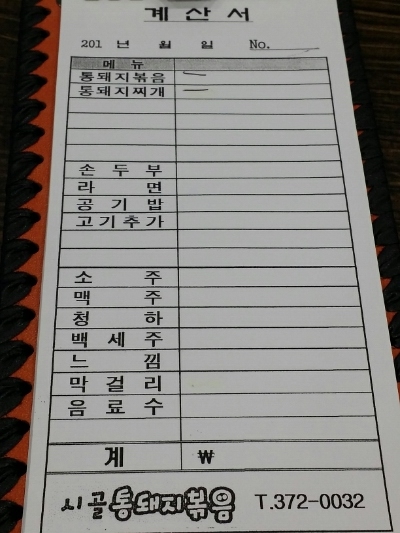 계 산 서
201 년 월 일 No.
메 뉴
통돼지볶음 ㅡ
통돼지찌개 ㅡ
손 두 부
라 면
공 기 밥
고기추가
소 주
맥 주
청 하
백 세 주
느 낌
막 걸 리
음 료 수
계 ₩
시골통돼지볶음 T.372-0032